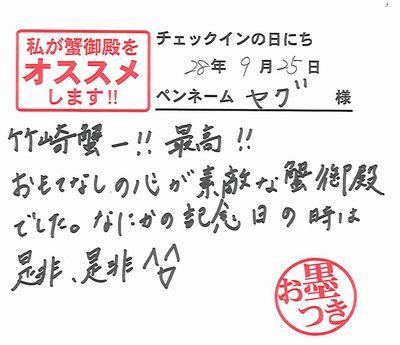 私が蟹御殿を
オススメ
します!!
チェックインの日にち
28年 9月 25日
ペンネーム ヤグ 様
竹崎蟹ー!! 最高!!
おもてなしの心が素敵な蟹御殿
でした。なにかの記念日の時は
是非、是非 ^^
お墨つき